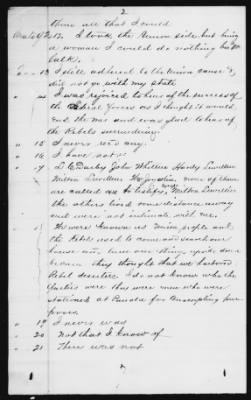 2
them all that I could
12. I took the Union side but being
a woman I could do nothing but
talk.
" 13 I still adhered to the Union cause &
did not go with my state
" 14 I was rejoiced to hear of the success of
the forces as I thought it would
End the war and was glad to hear of
the Rebels surrendering
" 15 I never did any.
" 16 I have not
" 17 L E Darby John Whitlive Hardy Lewellen
Milton Lewellen none of them
are called as to testify, except Milton Lewellen
the others lived some distance away
and were not intimate with me.
" 18 We were known as Union people and
the Rebels used to come and search our
house and turn every thing upside down
because they thought that we harbored
Rebel deserters I do not know who the
parties were they were men who were
stationed at for conscripting
forces
" 19 I never was
" 20 Not that I know of
" 21 There was not